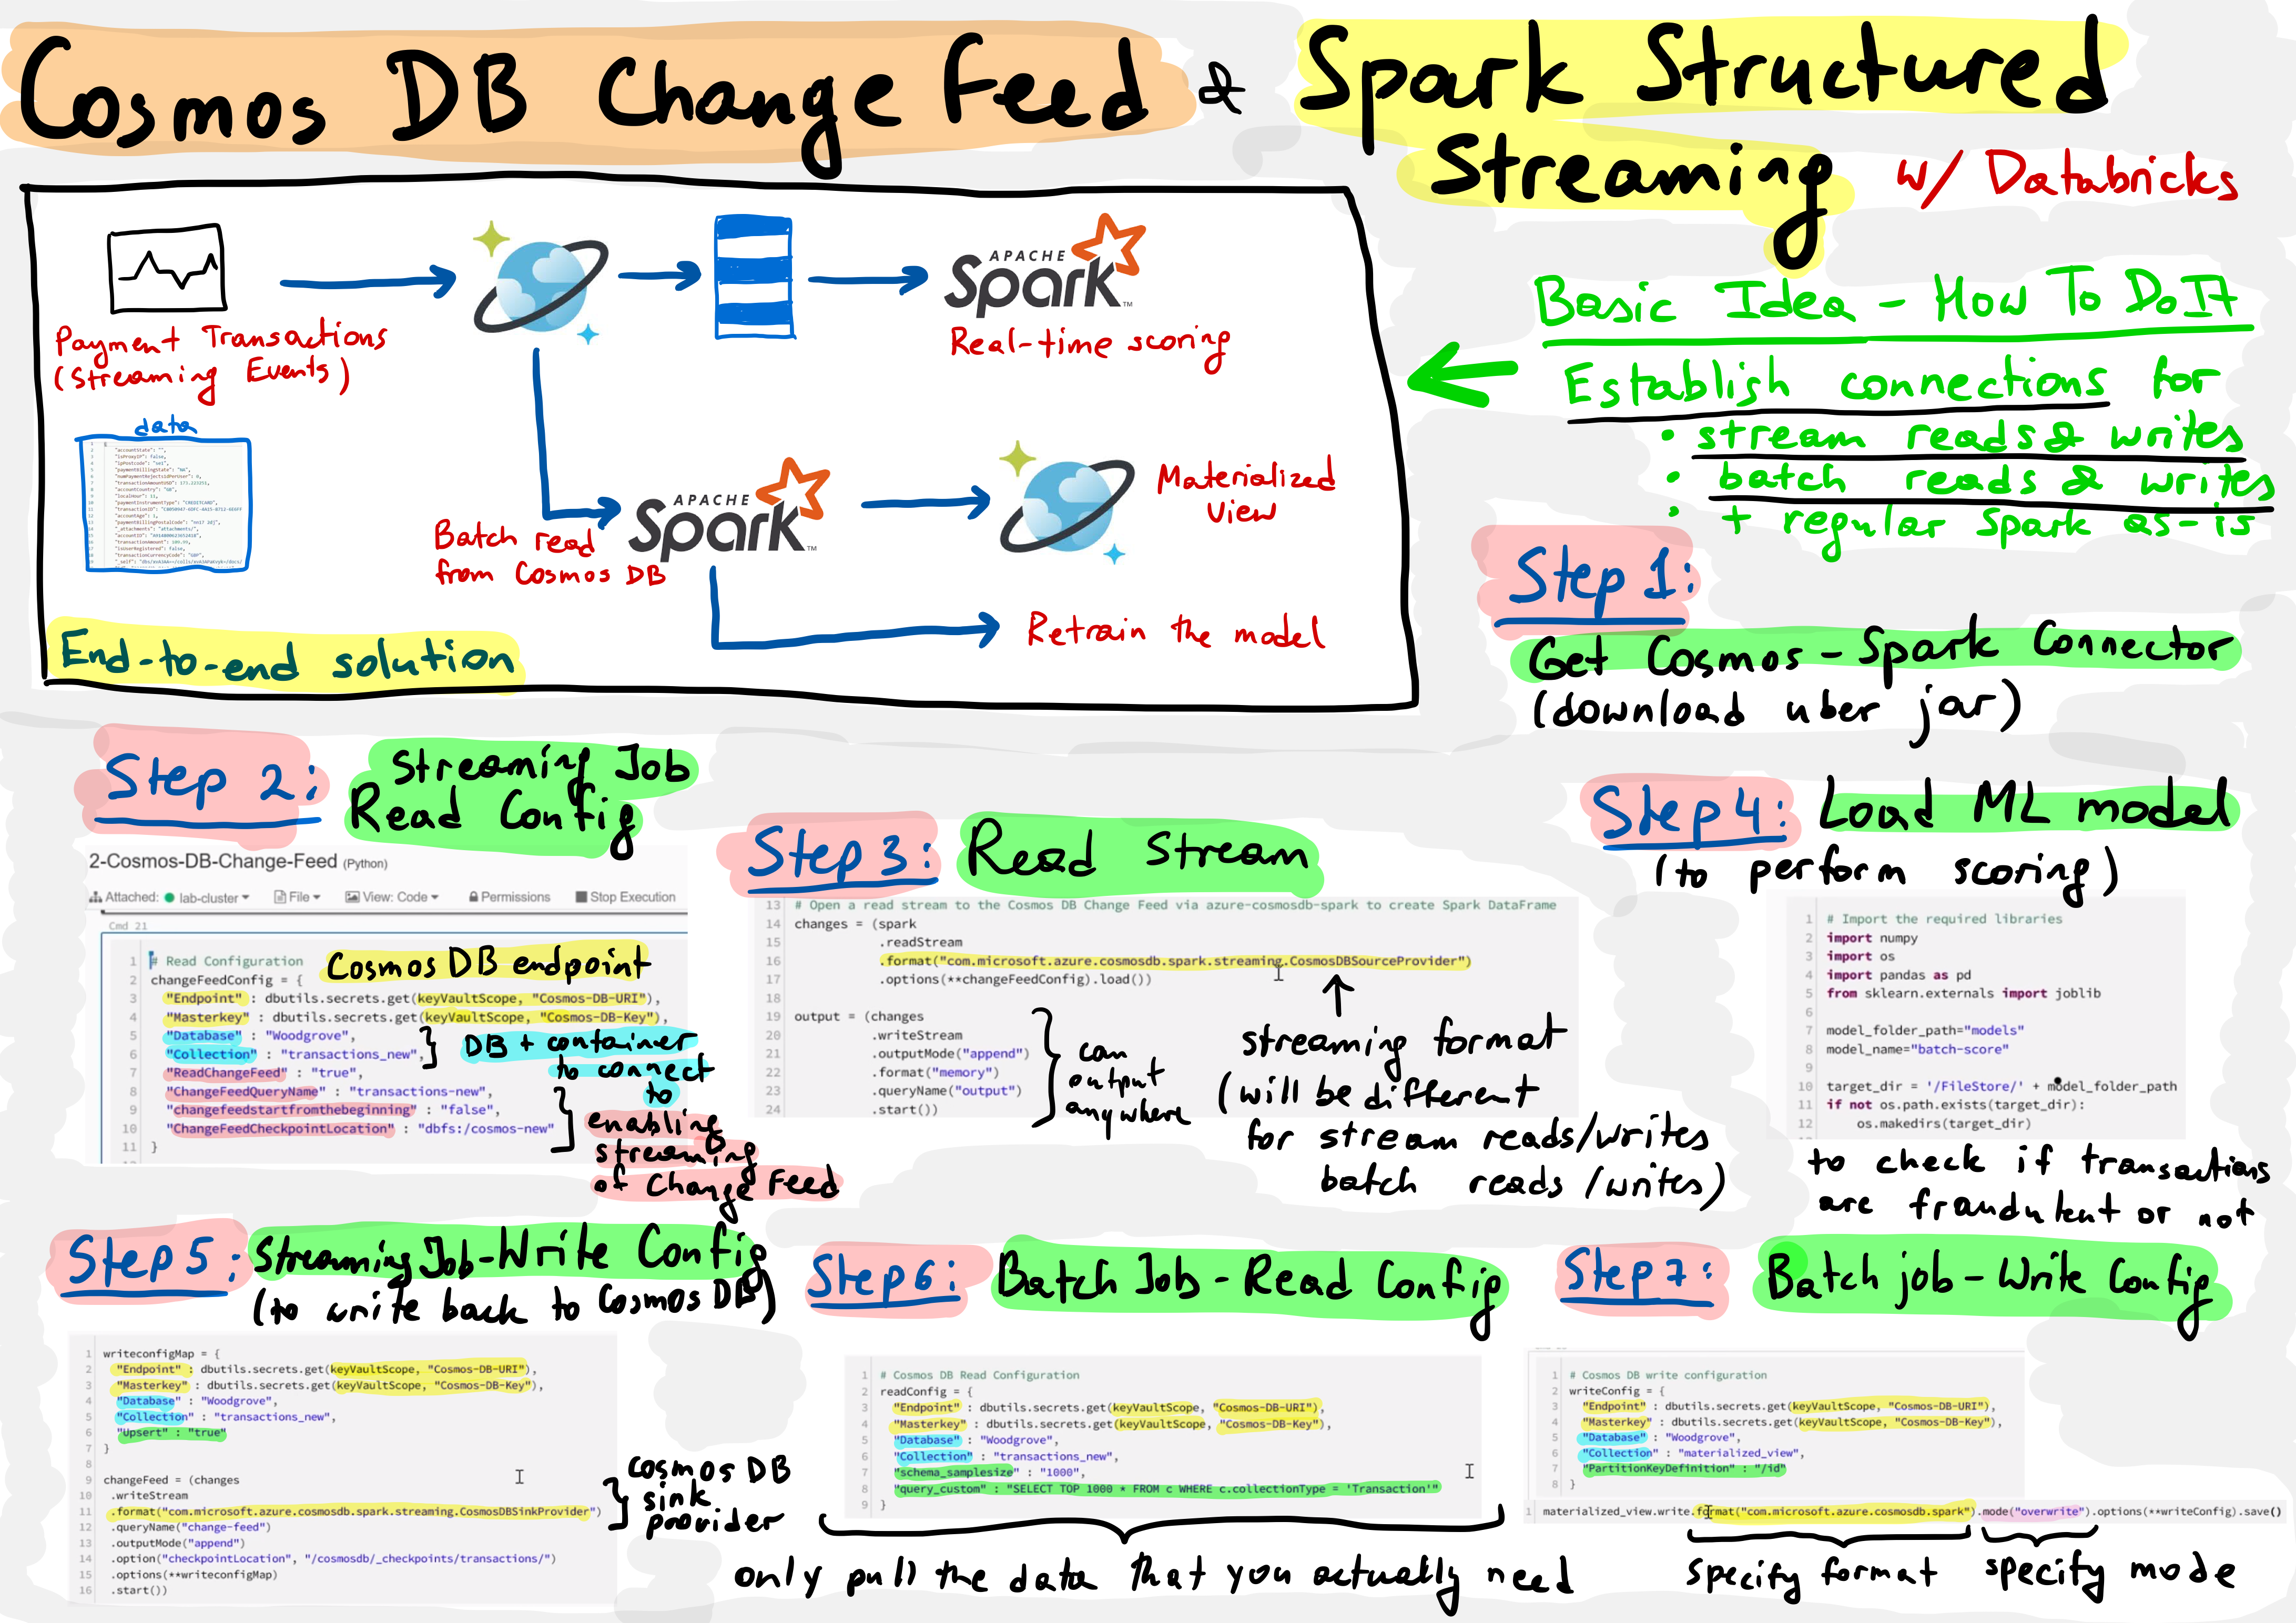 Cosmos DB Change Feed & Spark Structured
Streaming w/ Databricks
Payment Transactions
(Streaming Events)
APACHE
Spark™
Real-time scoring
data
Batch read
from Cosmos DB
APACHE
Spark™
Materialized
View
Retrain the model
End-to-end solution
Basic Idea - How To Do It
Establish connections for
• stream reads & writes
• batch reads & writes
• + regular Spark as-is
Step 1:
Get Cosmos - Spark Connector
(download uber jar)
Step 2:
Streaming Job
Read Config
2-Cosmos-DB-Change-Feed (Python)
Attached: lab-cluster File View: Code Permissions Stop Execution
Cmd 21
1 # Read Configuration
2 changeFeedConfig = {
3 "Endpoint" : dbutils.secrets.get(keyVaultScope, "Cosmos-DB-URI"),
4 "Masterkey" : dbutils.secrets.get(keyVaultScope, "Cosmos-DB-Key"),
5 "Database" : "Woodgrove",
6 "Collection" : "transactions_new",
7 "ReadChangeFeed" : "true",
8 "ChangeFeedQueryName" : "transactions-new",
9 "changefeedstartfromthebeginning" : "false",
10 "ChangeFeedCheckpointLocation" : "dbfs:/cosmos-new"
11 }
Cosmos DB endpoint
DB + container
to connect
to
enabling
streaming
of Change Feed
Step 3: Read Stream
13 # Open a read stream to the Cosmos DB Change Feed via azure-cosmosdb-spark to create Spark DataFrame
14 changes = (spark
15 .readStream
16 .format("com.microsoft.azure.cosmosdb.spark.streaming.CosmosDBSourceProvider")
17 .options(**changeFeedConfig).load())
18
19 output = (changes
20 .writeStream
21 .outputMode("append")
22 .format("memory")
23 .queryName("output")
24 .start())
can
output
anywhere
streaming format
(will be different
for stream reads/writes
batch reads /writes)
Step 4: Load ML model
(to perform scoring)
1 # Import the required libraries
2 import numpy
3 import os
4 import pandas as pd
5 from sklearn.externals import joblib
6
7 model_folder_path="models"
8 model_name="batch-score"
9
10 target_dir = '/FileStore/' + model_folder_path
11 if not os.path.exists(target_dir):
12 os.makedirs(target_dir)
to check if transactions
are fraudulent or not
Step 5: Streaming Job - Write Config
(to write back to Cosmos DB)
1 writeconfigMap = {
2 "Endpoint" : dbutils.secrets.get(keyVaultScope, "Cosmos-DB-URI"),
3 "Masterkey" : dbutils.secrets.get(keyVaultScope, "Cosmos-DB-Key"),
4 "Database" : "Woodgrove",
5 "Collection" : "transactions_new",
6 "Upsert" : "true"
7 }
8
9 changeFeed = (changes
10 .writeStream
11 .format("com.microsoft.azure.cosmosdb.spark.streaming.CosmosDBSinkProvider")
12 .queryName("change-feed")
13 .outputMode("append")
14 .option("checkpointLocation", "/cosmosdb/_checkpoints/transactions/")
15 .options(**writeconfigMap)
16 .start())
Cosmos DB
sink
provider
Step 6: Batch Job - Read Config
1 # Cosmos DB Read Configuration
2 readConfig = {
3 "Endpoint" : dbutils.secrets.get(keyVaultScope, "Cosmos-DB-URI"),
4 "Masterkey" : dbutils.secrets.get(keyVaultScope, "Cosmos-DB-Key"),
5 "Database" : "Woodgrove",
6 "Collection" : "transactions_new",
7 "schema_samplesize" : "1000",
8 "query_custom" : "SELECT TOP 1000 * FROM c WHERE c.collectionType = 'Transaction'"
9 }
only pull the data that you actually need
Step 7: Batch job - Write Config
1 # Cosmos DB write configuration
2 writeConfig = {
3 "Endpoint" : dbutils.secrets.get(keyVaultScope, "Cosmos-DB-URI"),
4 "Masterkey" : dbutils.secrets.get(keyVaultScope, "Cosmos-DB-Key"),
5 "Database" : "Woodgrove",
6 "Collection" : "materialized_view",
7 "PartitionKeyDefinition" : "/id"
8 }
1 materialized_view.write.format("com.microsoft.azure.cosmosdb.spark").mode("overwrite").options(**writeConfig).save()
specify format specify mode